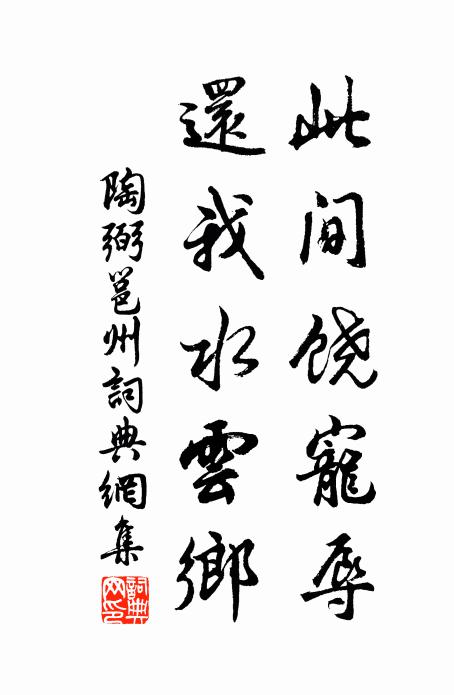 此间饶寵辱
還我水雲鄉
陶弼邕州詞典網集
詞典網印